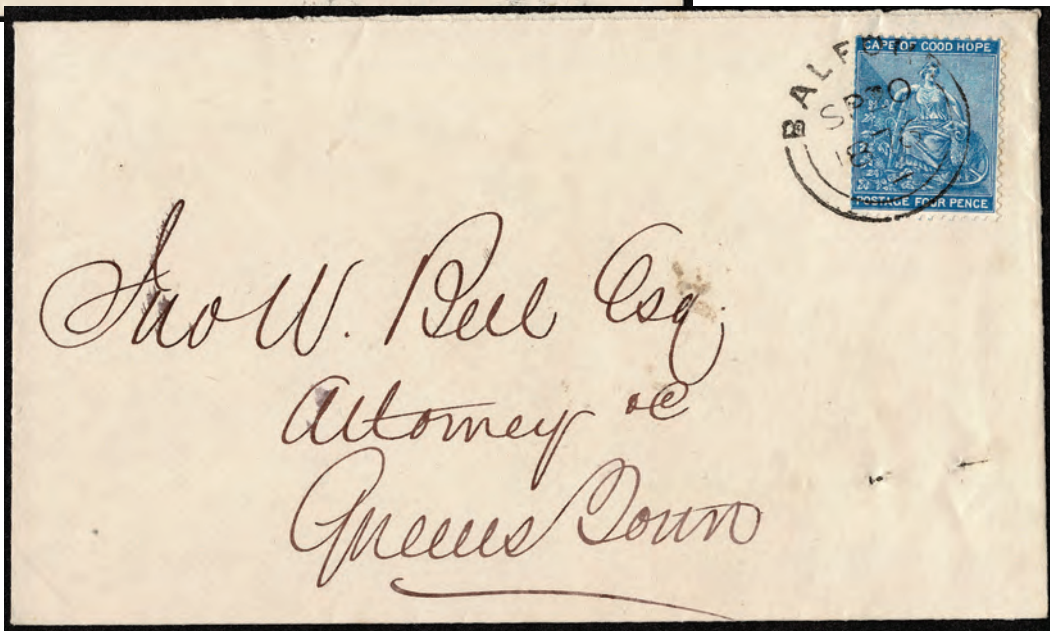 CAPE OF GOOD HOPE
POSTAGE FOUR PENCE
Jno W. Bell Esq.
Attorney &c
Queens Town